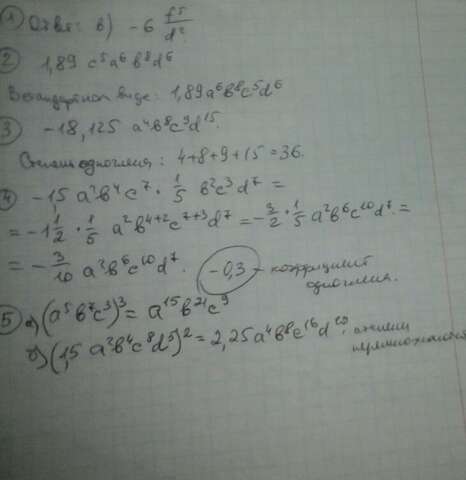 ① Ответ: в) -6 f⁵/d²
② 1,89 c⁵a⁶b⁸d⁶
В стандартном виде: 1,89a⁶b⁸c⁵d⁶
③ -18,125 a⁴b⁸c⁹d¹⁵.
Степень одночлена: 4+8+9+15=36.
④ -15 a²b⁴c⁷ · 1/5 b²c³d⁷ =
= -1 1/2 · 1/5 a²b⁴⁺²c⁷⁺³d⁷ = -3/2 · 1/5 a²b⁶c¹⁰d⁷. =
= -3/10 a²b⁶c¹⁰d⁷. -0,3 - коэффициент
одночлена.
⑤ а) (a⁵b⁷c³)³ = a¹⁵b²¹c⁹
б) (1,5 a²b⁴c⁸d⁵)² = 2,25a⁴b⁸c¹⁶d¹⁰, степени